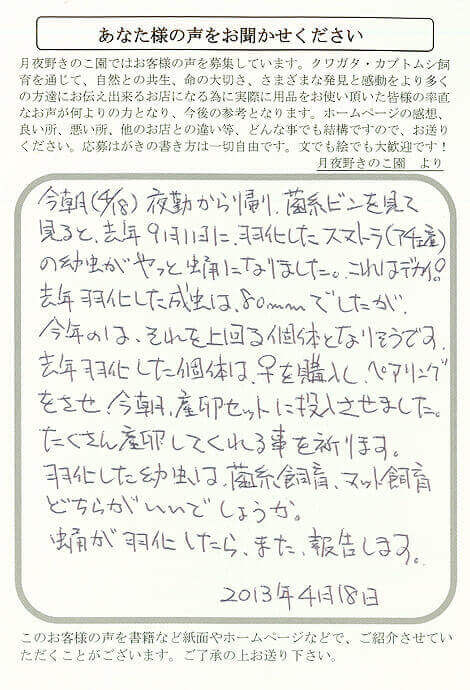 あなた様の声をお聞かせください
月夜野きのこ園ではお客様の声を募集しています。クワガタ・カブトムシ飼
育を通じて、自然との共生、命の大切さ、さまざまな発見と感動をより多く
の方達にお伝え出来るお店になる為に実際に用品をお使い頂いた皆様の率直
なお声が何よりの力となり、今後の参考となります。ホームページの感想、
良い所、悪い所、他のお店との違い等、どんな事でも結構ですので、お送り
ください。応募はがきの書き方は一切自由です。文でも絵でも大歓迎です！
月夜野きのこ園　より
今朝(4/18) 夜勤から帰り、菌糸ビンを見て
見ると、去年9月11日に、羽化したスマトラ(アチェ産)
の幼虫がやっと蛹になりました。これはデカイ。
去年羽化した成虫は、80mmでしたが、
今年のは、それを上回る個体となりそうです。
去年羽化した個体は、♀を購入し、ペアリング
をさせ、今朝、産卵セットに投入させました。
たくさん産卵してくれる事を祈ります。
羽化した幼虫は、菌糸飼育、マット飼育
どちらがいいでしょうか。
蛹が羽化したら、また、報告します。
2013年4月18日
このお客様の声を書籍など紙面やホームページなどで、ご紹介させてい
ただくことがございます。ご了承の上お送り下さい。